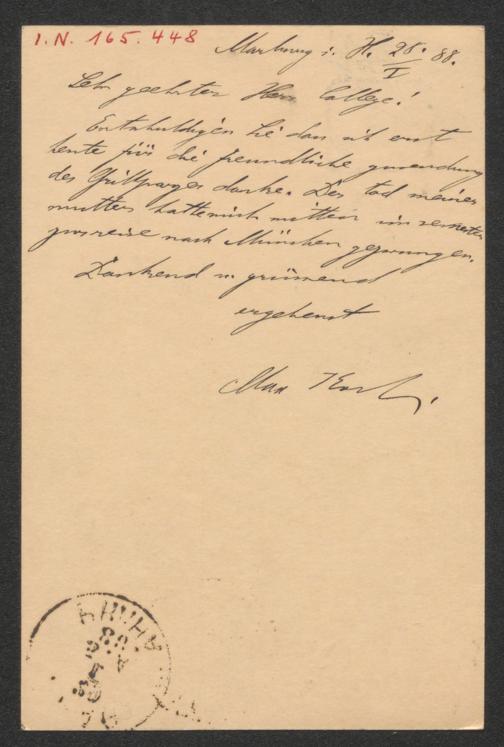 I.N. 165.448
Marburg i. H. 28./I 88.
Sehr geehrter Herr College!
Entschuldigen Sie dass ich erst
heute für die freundliche zusendung
des Grillparzer danke. Der tod meiner
mutter hatte mich mitten im semester
zur reise nach München gezwungen.
Dankend u. grüssend
ergebenst
Max Koch.